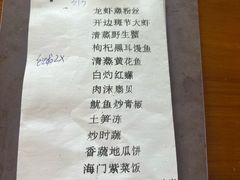 龙虾蒸粉丝
开边斑节大虾
清蒸野生蟹
枸杞黑耳漫鱼
清蒸黄花鱼
白灼红螺
肉沫扇贝
鱿鱼炒青椒
土笋冻
炒时蔬
香蔬地瓜饼
海门紫菜饭